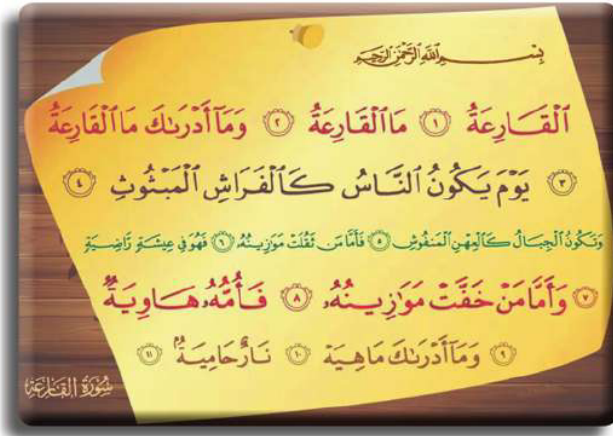 بِسْمِ ٱللَّهِ ٱلرَّحْمَٰنِ ٱلرَّحِيمِ
ٱلْقَارِعَةُ ١ مَا ٱلْقَارِعَةُ ٢ وَمَآ أَدْرَىٰكَ مَا ٱلْقَارِعَةُ
٣ يَوْمَ يَكُونُ ٱلنَّاسُ كَٱلْفَرَاشِ ٱلْمَبْثُوثِ ٤
وَتَكُونُ ٱلْجِبَالُ كَٱلْعِهْنِ ٱلْمَنفُوشِ ٥ فَأَمَّا مَن ثَقُلَتْ مَوَٰزِينُهُۥ ٦ فَهُوَ فِى عِيشَةٍ رَّاضِيَةٍ
٧ وَأَمَّا مَنْ خَفَّتْ مَوَٰزِينُهُۥ ٨ فَأُمُّهُۥ هَاوِيَةٌ
٩ وَمَآ أَدْرَىٰكَ مَا هِيَهْ ١٠ نَارٌ حَامِيَةٌۢ ١١
سُورَةُ القَارِعَةِ